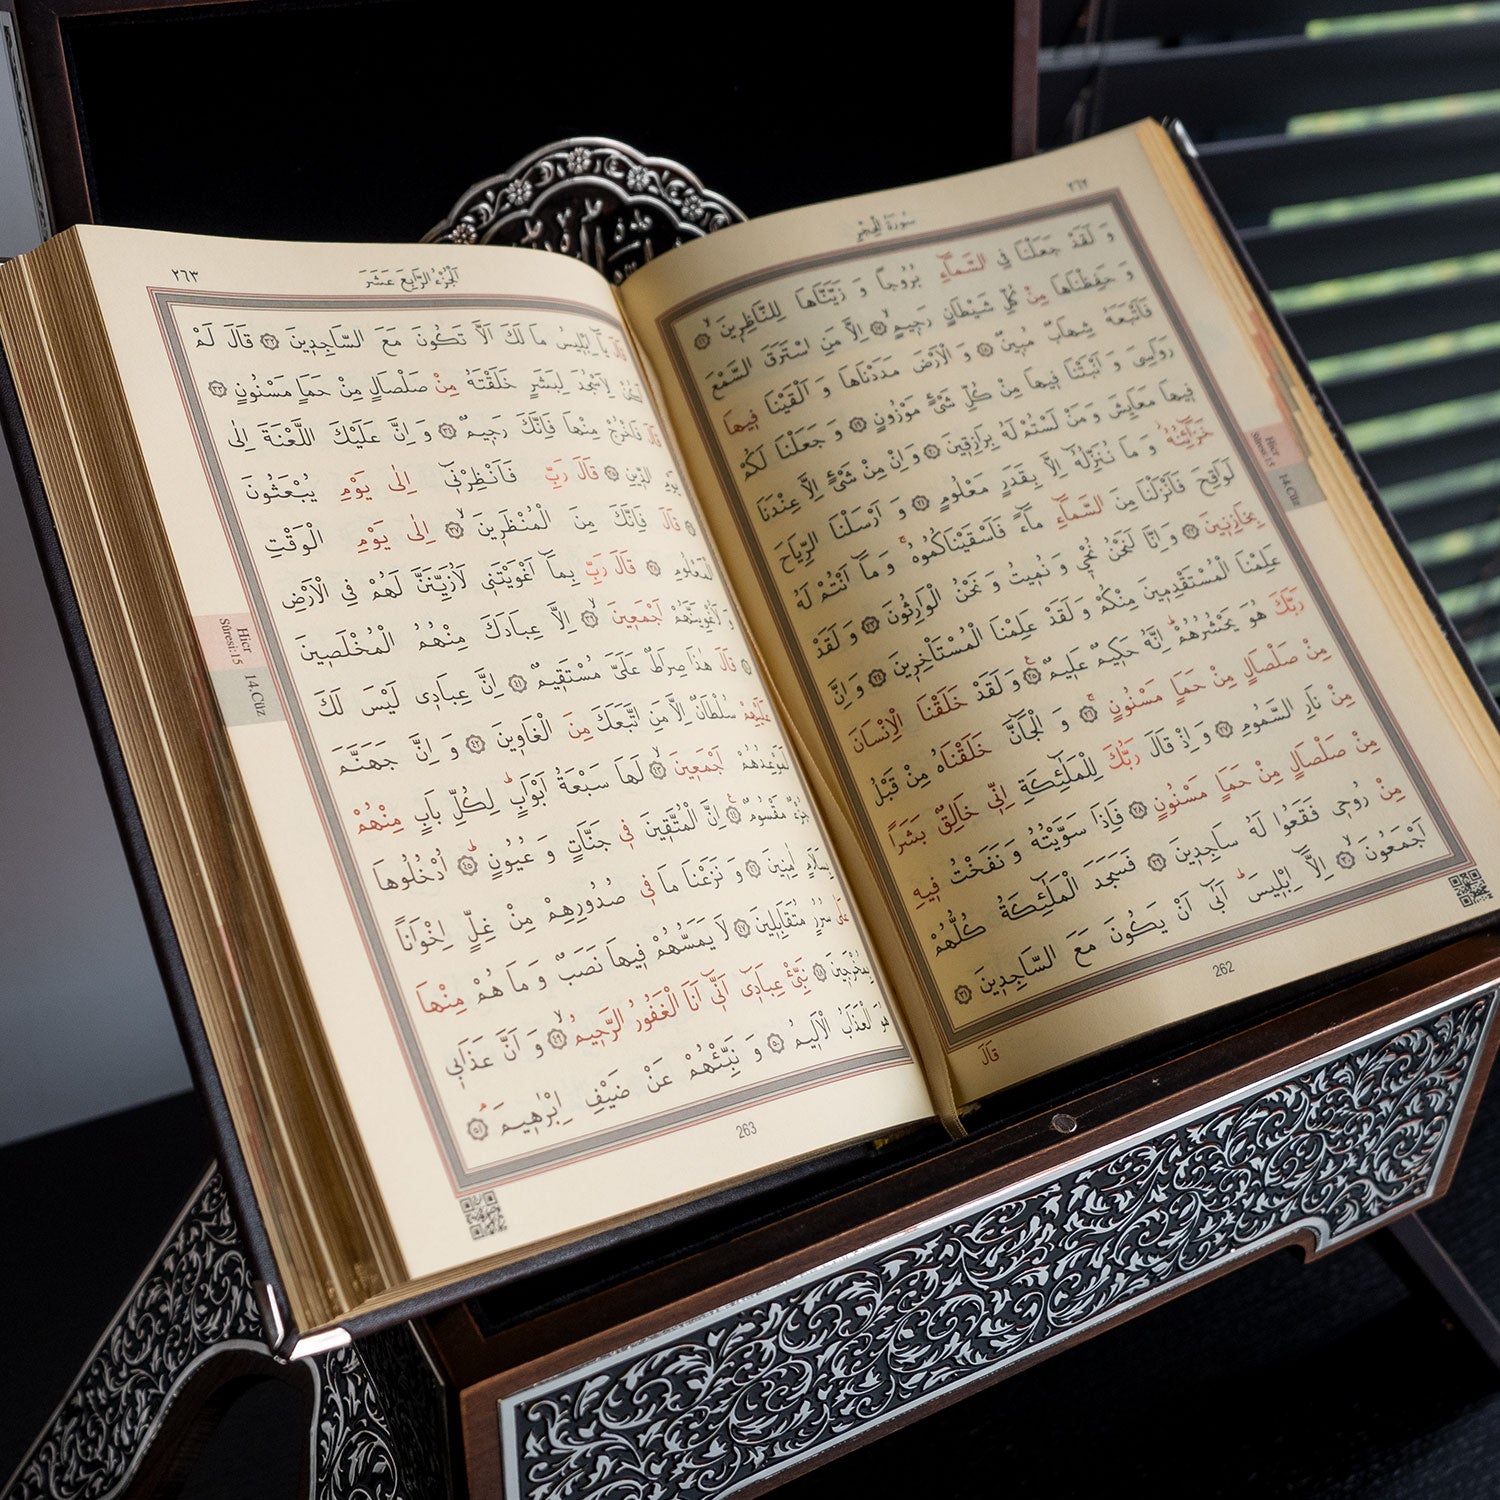 ٢٦٢
سُورَةُ الْحِجْرِ
وَ لَقَدْ جَعَلْنَا فِى السَّمَٓاءِ بُرُوجاً وَ زَيَّنَّاهَا لِلنَّاظِرٖينَۙ ﴿١٦﴾
وَ حَفِظْنَاهَا مِنْ كُلِّ شَيْطَانٍ رَجٖيمٍۙ ﴿١٧﴾ اِلَّا مَنِ اسْتَرَقَ السَّمْعَ
فَاَتْبَعَهُ شِهَابٌ مُبٖينٌ ﴿١٨﴾ وَ الْاَرْضَ مَدَدْنَاهَا وَ اَلْقَيْنَا فٖيهَا
رَوَاسِىَ وَ اَنْبَتْنَا فٖيهَا مِنْ كُلِّ شَیْءٍ مَوْزُونٍ ﴿١٩﴾ وَ جَعَلْنَا لَكُمْ
فٖيهَا مَعَايِشَ وَ مَنْ لَسْتُمْ لَهُ بِرَازِقٖينَ ﴿٢٠﴾ وَ اِنْ مِنْ شَیْءٍ اِلَّا عِنْدَنَا
خَزَٓائِنُهُؗ وَ مَا نُنَزِّلُهُٓ اِلَّا بِقَدَرٍ مَعْلُومٍ ﴿٢١﴾ وَ اَرْسَلْنَا الرِّيَاحَ
لَوَاقِحَ فَاَنْزَلْنَا مِنَ السَّمَٓاءِ مَٓاءً فَاَسْقَيْنَاكُمُوهُۚ وَ مَٓا اَنْتُمْ لَهُ
بِخَازِنٖينَ ﴿٢٢﴾ وَ اِنَّا لَنَحْنُ نُحْيٖ وَ نُمٖيتُ وَ نَحْنُ الْوَارِثُونَ ﴿٢٣﴾ وَ لَقَدْ
عَلِمْنَا الْمُسْتَقْدِمٖينَ مِنْكُمْ وَ لَقَدْ عَلِمْنَا الْمُسْتَأْخِرٖينَ ﴿٢٤﴾ وَ اِنَّ
رَبَّكَ هُوَ يَحْشُرُهُمْؕ اِنَّهُ حَكٖيمٌ عَلٖيمٌ ﴿٢٥﴾ وَ لَقَدْ خَلَقْنَا الْاِنْسَانَ
مِنْ صَلْصَالٍ مِنْ حَمَاٍ مَسْنُونٍۚ ﴿٢٦﴾ وَ الْجَٓانَّ خَلَقْنَاهُ مِنْ قَبْلُ
مِنْ نَارِ السَّمُومِ ﴿٢٧﴾ وَ اِذْ قَالَ رَبُّكَ لِلْمَلٰٓئِكَةِ اِنّٖى خَالِقٌ بَشَراً
مِنْ صَلْصَالٍ مِنْ حَمَاٍ مَسْنُونٍ ﴿٢٨﴾ فَاِذَا سَوَّيْتُهُ وَ نَفَخْتُ فٖيهِ
مِنْ رُوحٖى فَقَعُوا لَهُ سَاجِدٖينَ ﴿٢٩﴾ فَسَجَدَ الْمَلٰٓئِكَةُ كُلُّهُمْ
اَجْمَعُونَۙ ﴿٣٠﴾ اِلَّٓا اِبْلٖيسَؕ اَبٰٓى اَنْ يَكُونَ مَعَ السَّاجِدٖينَ ﴿٣١﴾
قَالَ
262
Hicr
Sûresi:15
14.Cüz
٢٦٣
اَلْجُزْءُ الرَّابِعُ عَشَرَ
قَالَ يَٓا اِبْلٖيسُ مَا لَكَ اَلَّا تَكُونَ مَعَ السَّاجِدٖينَ ﴿٣٢﴾ قَالَ لَمْ
اَكُنْ لِاَسْجُدَ لِبَشَرٍ خَلَقْتَهُ مِنْ صَلْصَالٍ مِنْ حَمَاٍ مَسْنُونٍ ﴿٣٣﴾
قَالَ فَاخْرُجْ مِنْهَا فَاِنَّكَ رَجٖيمٌۙ ﴿٣٤﴾ وَ اِنَّ عَلَيْكَ اللَّعْنَةَ اِلٰى
يَوْمِ الدّٖينِ ﴿٣٥﴾ قَالَ رَبِّ فَاَنْظِرْنٖٓى اِلٰى يَوْمِ يُبْعَثُونَ
﴿٣٦﴾ قَالَ فَاِنَّكَ مِنَ الْمُنْظَرٖينَۙ ﴿٣٧﴾ اِلٰى يَوْمِ الْوَقْتِ
الْمَعْلُومِ ﴿٣٨﴾ قَالَ رَبِّ بِمَٓا اَغْوَيْتَنٖى لَاُزَيِّنَنَّ لَهُمْ فِى الْاَرْضِ
وَ لَاُغْوِيَنَّهُمْ اَجْمَعٖينَۙ ﴿٣٩﴾ اِلَّا عِبَادَكَ مِنْهُمُ الْمُخْلَصٖينَ
﴿٤٠﴾ قَالَ هٰذَا صِرَاطٌ عَلَیَّ مُسْتَقٖيمٌ ﴿٤١﴾ اِنَّ عِبَادٖى لَيْسَ لَكَ
عَلَيْهِمْ سُلْطَانٌ اِلَّا مَنِ اتَّبَعَكَ مِنَ الْغَاوٖينَ ﴿٤٢﴾ وَ اِنَّ جَهَنَّمَ
لَمَوْعِدُهُمْ اَجْمَعٖينَۙ ﴿٤٣﴾ لَهَا سَبْعَةُ اَبْوَابٍؕ لِكُلِّ بَابٍ مِنْهُمْ
جُزْءٌ مَقْسُومٌ ﴿٤٤﴾ اِنَّ الْمُتَّقٖينَ فٖى جَنَّاتٍ وَ عُيُونٍؕ ﴿٤٥﴾ اُدْخُلُوهَا
بِسَلَامٍ اٰمِنٖينَ ﴿٤٦﴾ وَ نَزَعْنَا مَا فٖى صُدُورِهِمْ مِنْ غِلٍّ اِخْوَاناً
عَلٰى سُرُرٍ مُتَقَابِلٖينَ ﴿٤٧﴾ لَا يَمَسُّهُمْ فٖيهَا نَصَبٌ وَ مَا هُمْ مِنْهَا
بِمُخْرَجٖينَ ﴿٤٨﴾ نَبِّئْ عِبَادٖٓى اَنّٖٓى اَنَا الْغَفُورُ الرَّحٖيمُۙ ﴿٤٩﴾ وَ اَنَّ عَذَابٖى
هُوَ الْعَذَابُ الْاَلٖيمُ ﴿٥٠﴾ وَ نَبِّئْهُمْ عَنْ ضَيْفِ اِبْرٰهٖيمَۘ ﴿٥١﴾
263
Hicr
Sûresi:15
14.Cüz